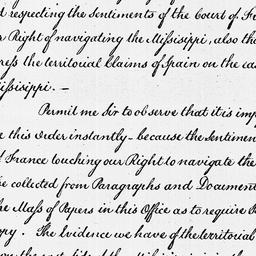 respecting the Sentiments of the Court of
Right of navigating the Missisippi, also the
the territorial Claims of Spain on the
Missisippi. —
Permit me Sir to observe that it is
this Order instantly - because the Sentiments
France touching our Right to navigate the
collected from Paragraphs and Documents
Mass of Papers in this Office as to require
The Evidence we have of the territorial